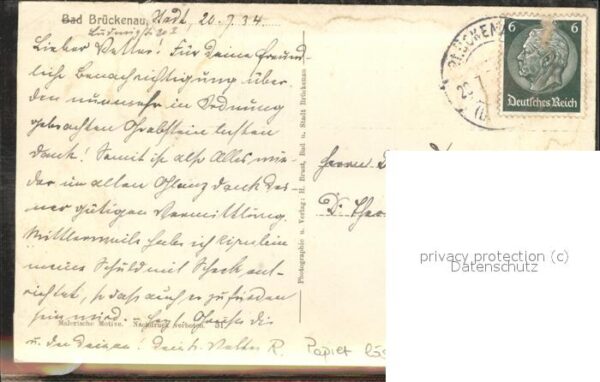 Bad Brückenau, Stadt, 20.7.34.
Ludwigstr.
Lieber Vetter! Für Deine freund-
liche Benachrichtigung über
den nunmehr in Ordnung
gebrachten Grabstein besten
Dank! Somit ist also Alles wie-
der im alten Glanz dank Dei-
ner gütigen Vermittlung.
Mittlerweile habe ich
meine Schuld mit Scheck ent-
richtet, so dass auch er zufrieden
sein wird. Herzl. Grüsse Dir
u. den Deinen! Dein tr. Vetter R.
Malerische Motive. Nachdruck verboten. 51
Photographie u. Verlag: H. Brust, Bad u. Stadt Brückenau
BRÜCKENAU
6 6
Deutsches Reich
Herrn
Papier
privacy protection (c)
Datenschutz